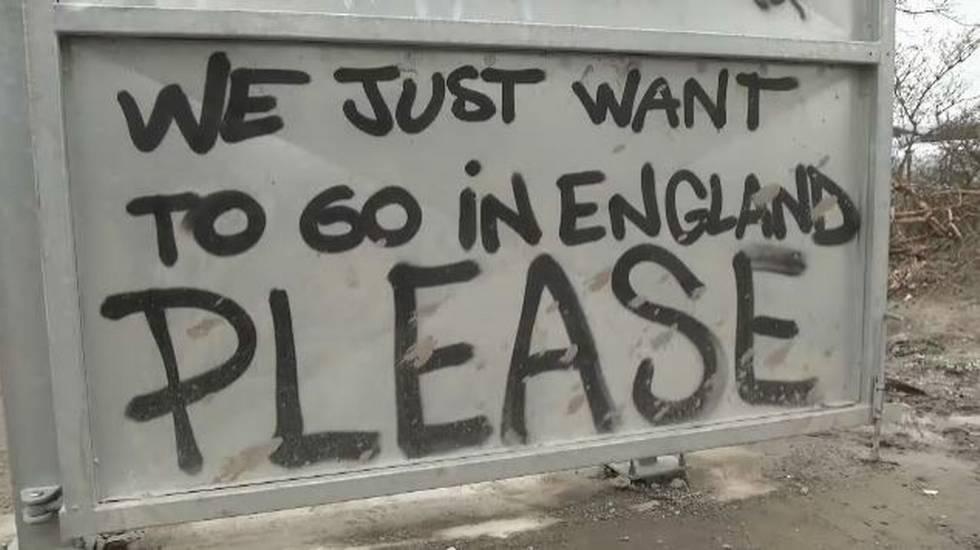 WE JUST WANT
TO GO iN ENGLAND
PLEASE